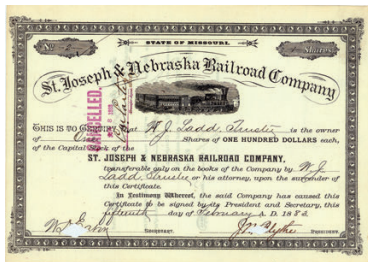 STATE OF MISSOURI.
No
Shares
St. Joseph & Nebraska Railroad Company
CANCELLED
THIS IS TO CERTIFY that W. J. Ladd Trustee is the owner
of One Shares of ONE HUNDRED DOLLARS each,
of the Capital Stock of the
ST. JOSEPH & NEBRASKA RAILROAD COMPANY,
transferable only on the books of the Company by W. J.
Ladd Trustee or his attorney, upon the surrender of
this Certificate.
In Testimony Whereof, the said Company has caused this
Certificate to be signed by its President and Secretary, this
fifteenth day of February A. D. 1882
SECRETARY.
PRESIDENT.